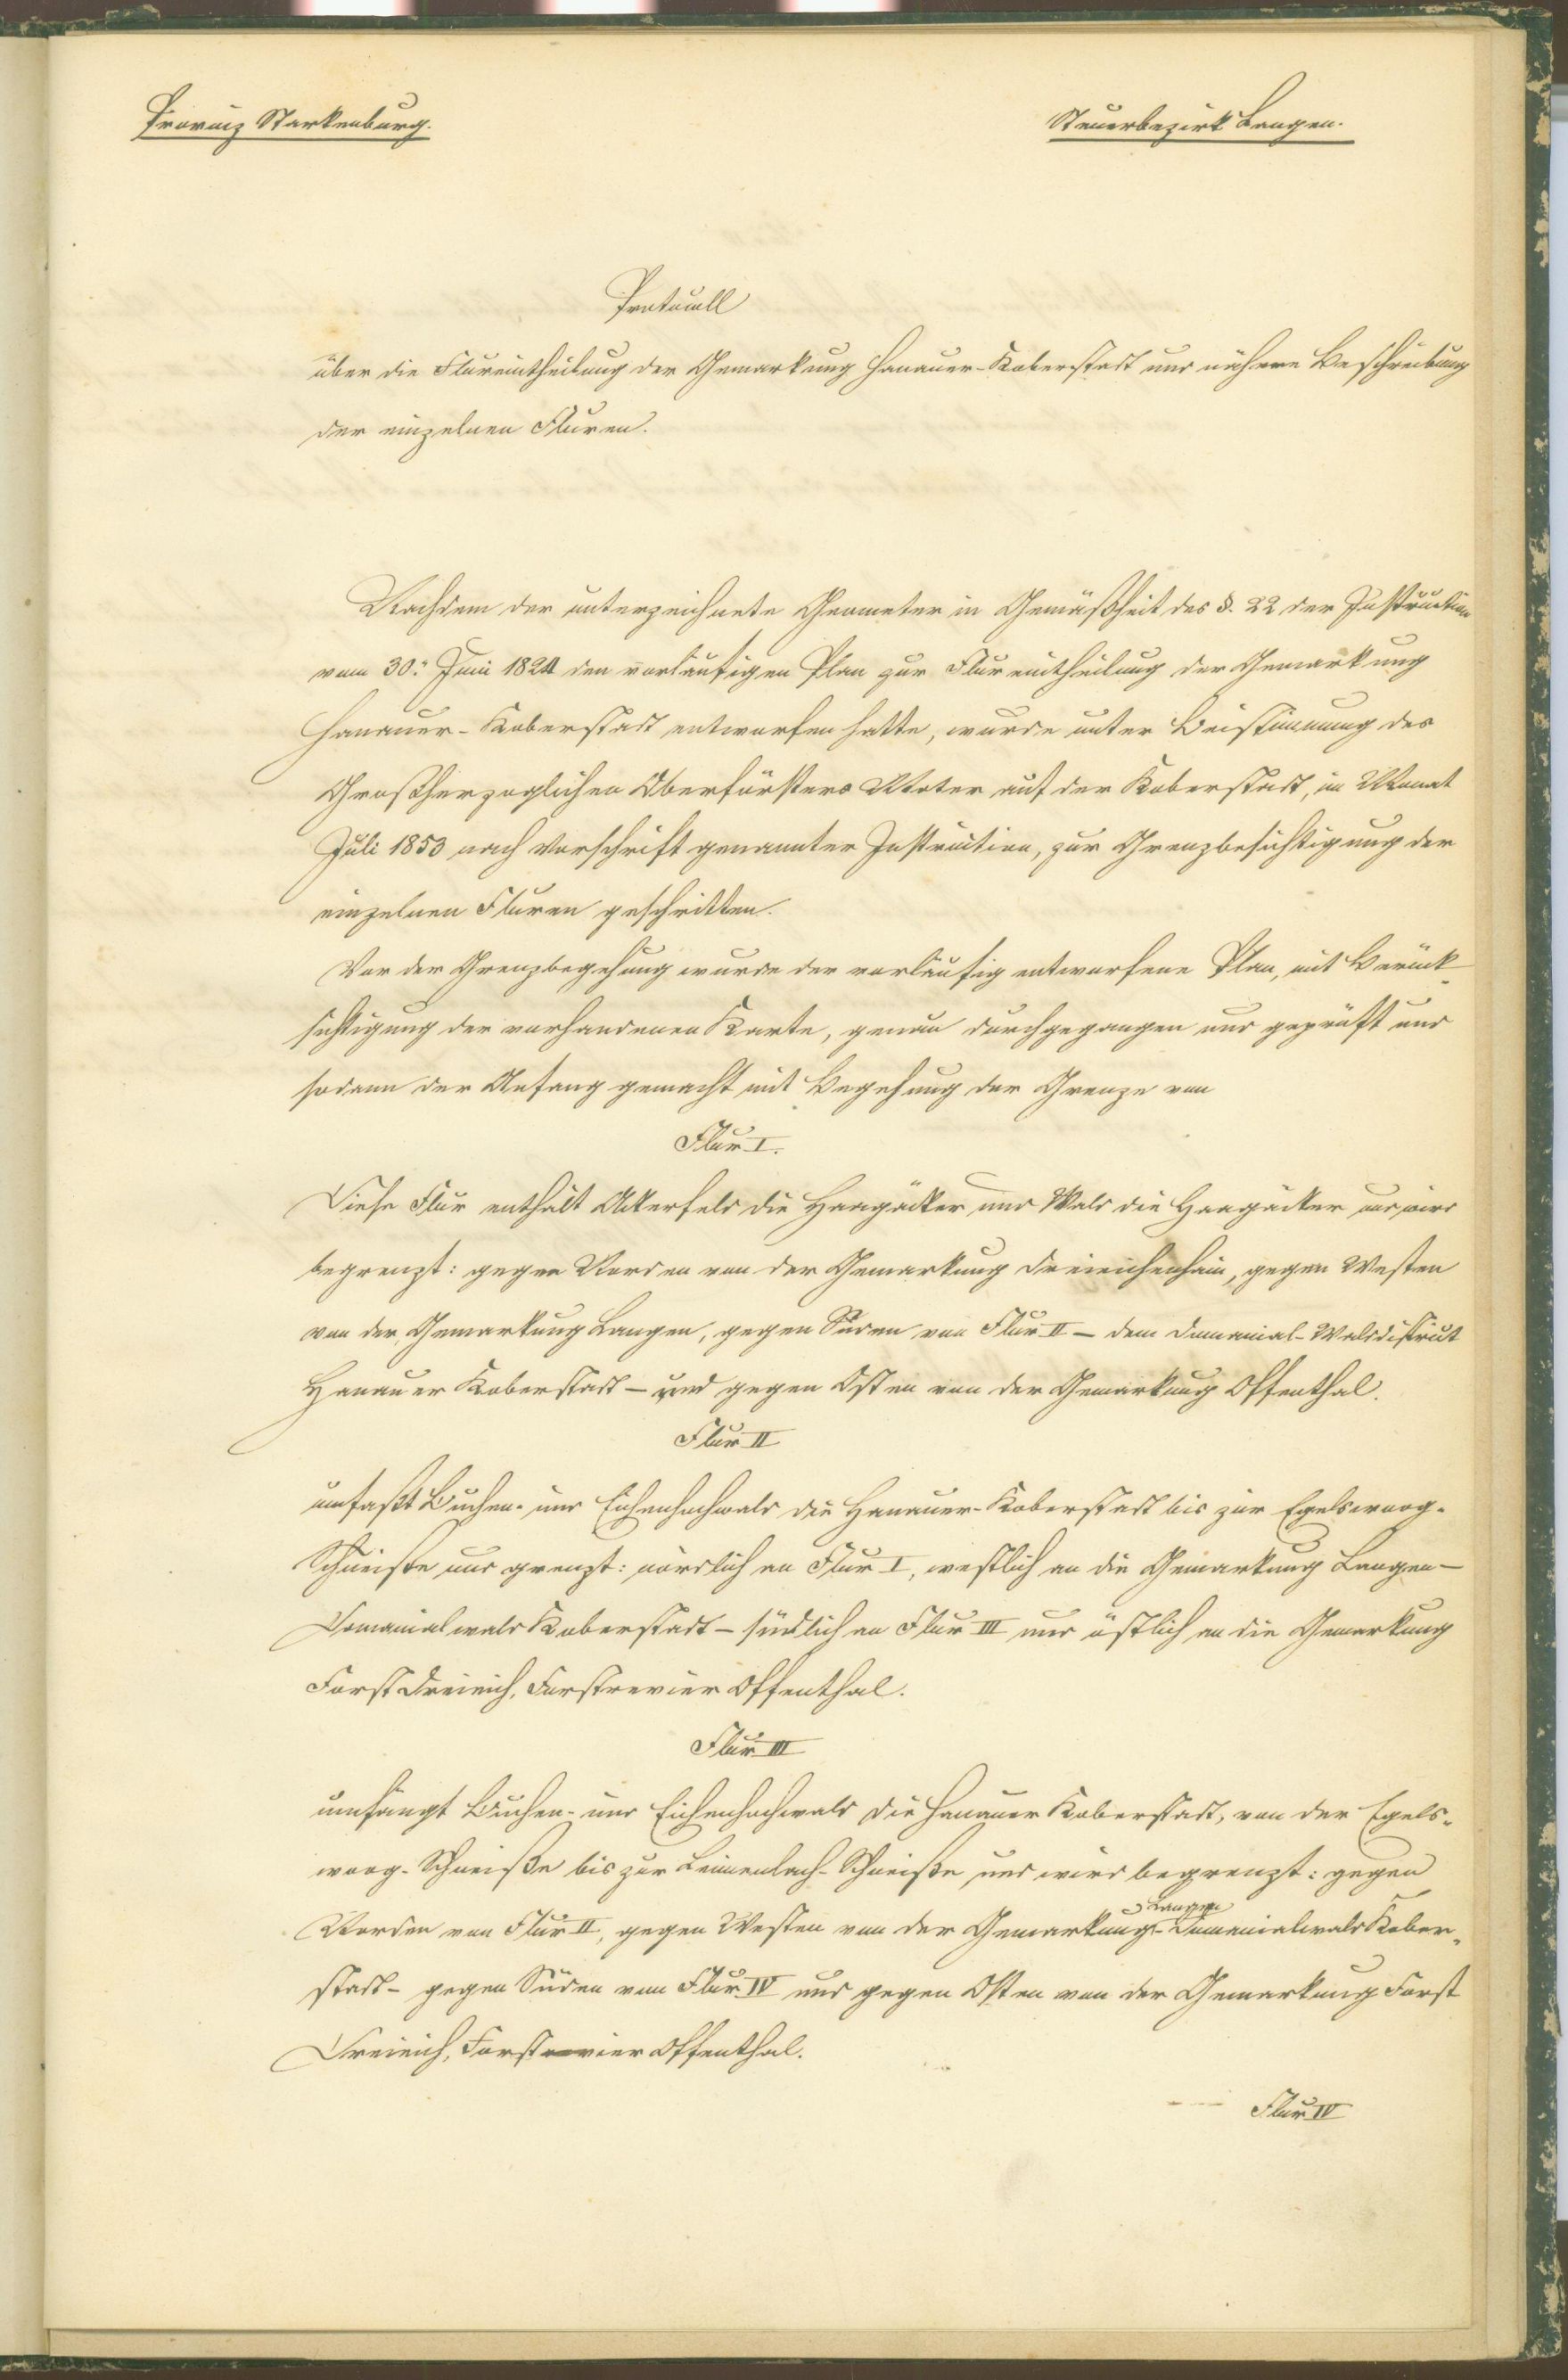 Provinz Starkenburg.
Steuerbezirk Langen.
Protocoll
über die Flureintheilung der Gemarkung Hanauer-Koberstadt und nähere Beschreibung
der einzelnen Fluren.
Nachdem der unterzeichnete Geometer in Gemäßheit des §. 22 der Instruction
vom 30.ⁿ Juni 1824 den vorläufigen Plan zur Flureintheilung der Gemarkung
Hanauer-Koberstadt entworfen hatte, wurde unter Beistimmung des
Großherzoglichen Oberförsters auf der Koberstadt, im Monat
Juli 1853 nach Vorschrift genannter Instruction, zur Grenzbesichtigung der
einzelnen Fluren geschritten.
Vor der Grenzbegehung wurde der vorläufig entworfene Plan, mit Berück-
sichtigung der vorhandenen Karte, genau durchgegangen und geprüft und
sodann der Anfang gemacht mit Begehung der Grenze von
Flur I.
Diese Flur enthält Ackerfeld die Haagäcker und Wald die Haagäcker und wird
begrenzt: gegen Norden von der Gemarkung Dreieichenhain, gegen Westen
von der Gemarkung Langen, gegen Süden von Flur II – dem Domanial-Walddistrict
Hanauer Koberstadt – und gegen Osten von der Gemarkung Offenthal.
Flur II
umfaßt Buchen- und Eichenhochwald die Hanauer-Koberstadt bis zur Egelswoog-
Schneiße und grenzt: nördlich an Flur I, westlich an die Gemarkung Langen –
Domanialwald Koberstadt – südlich an Flur III und östlich an die Gemarkung
Forst Dreieich, Forstrevier Offenthal.
Flur III
umfängt Buchen- und Eichenhochwald die Hanauer Koberstadt, von der Egels-
woog-Schneiße bis zur Leimenlach-Schneiße und wird begrenzt: gegen
Langen
Norden von Flur II, gegen Westen von der Gemarkung – Domanialwald Kober-
stadt – gegen Süden von Flur IV und gegen Osten von der Gemarkung Forst
Dreieich, Forstrevier Offenthal.
Flur IV